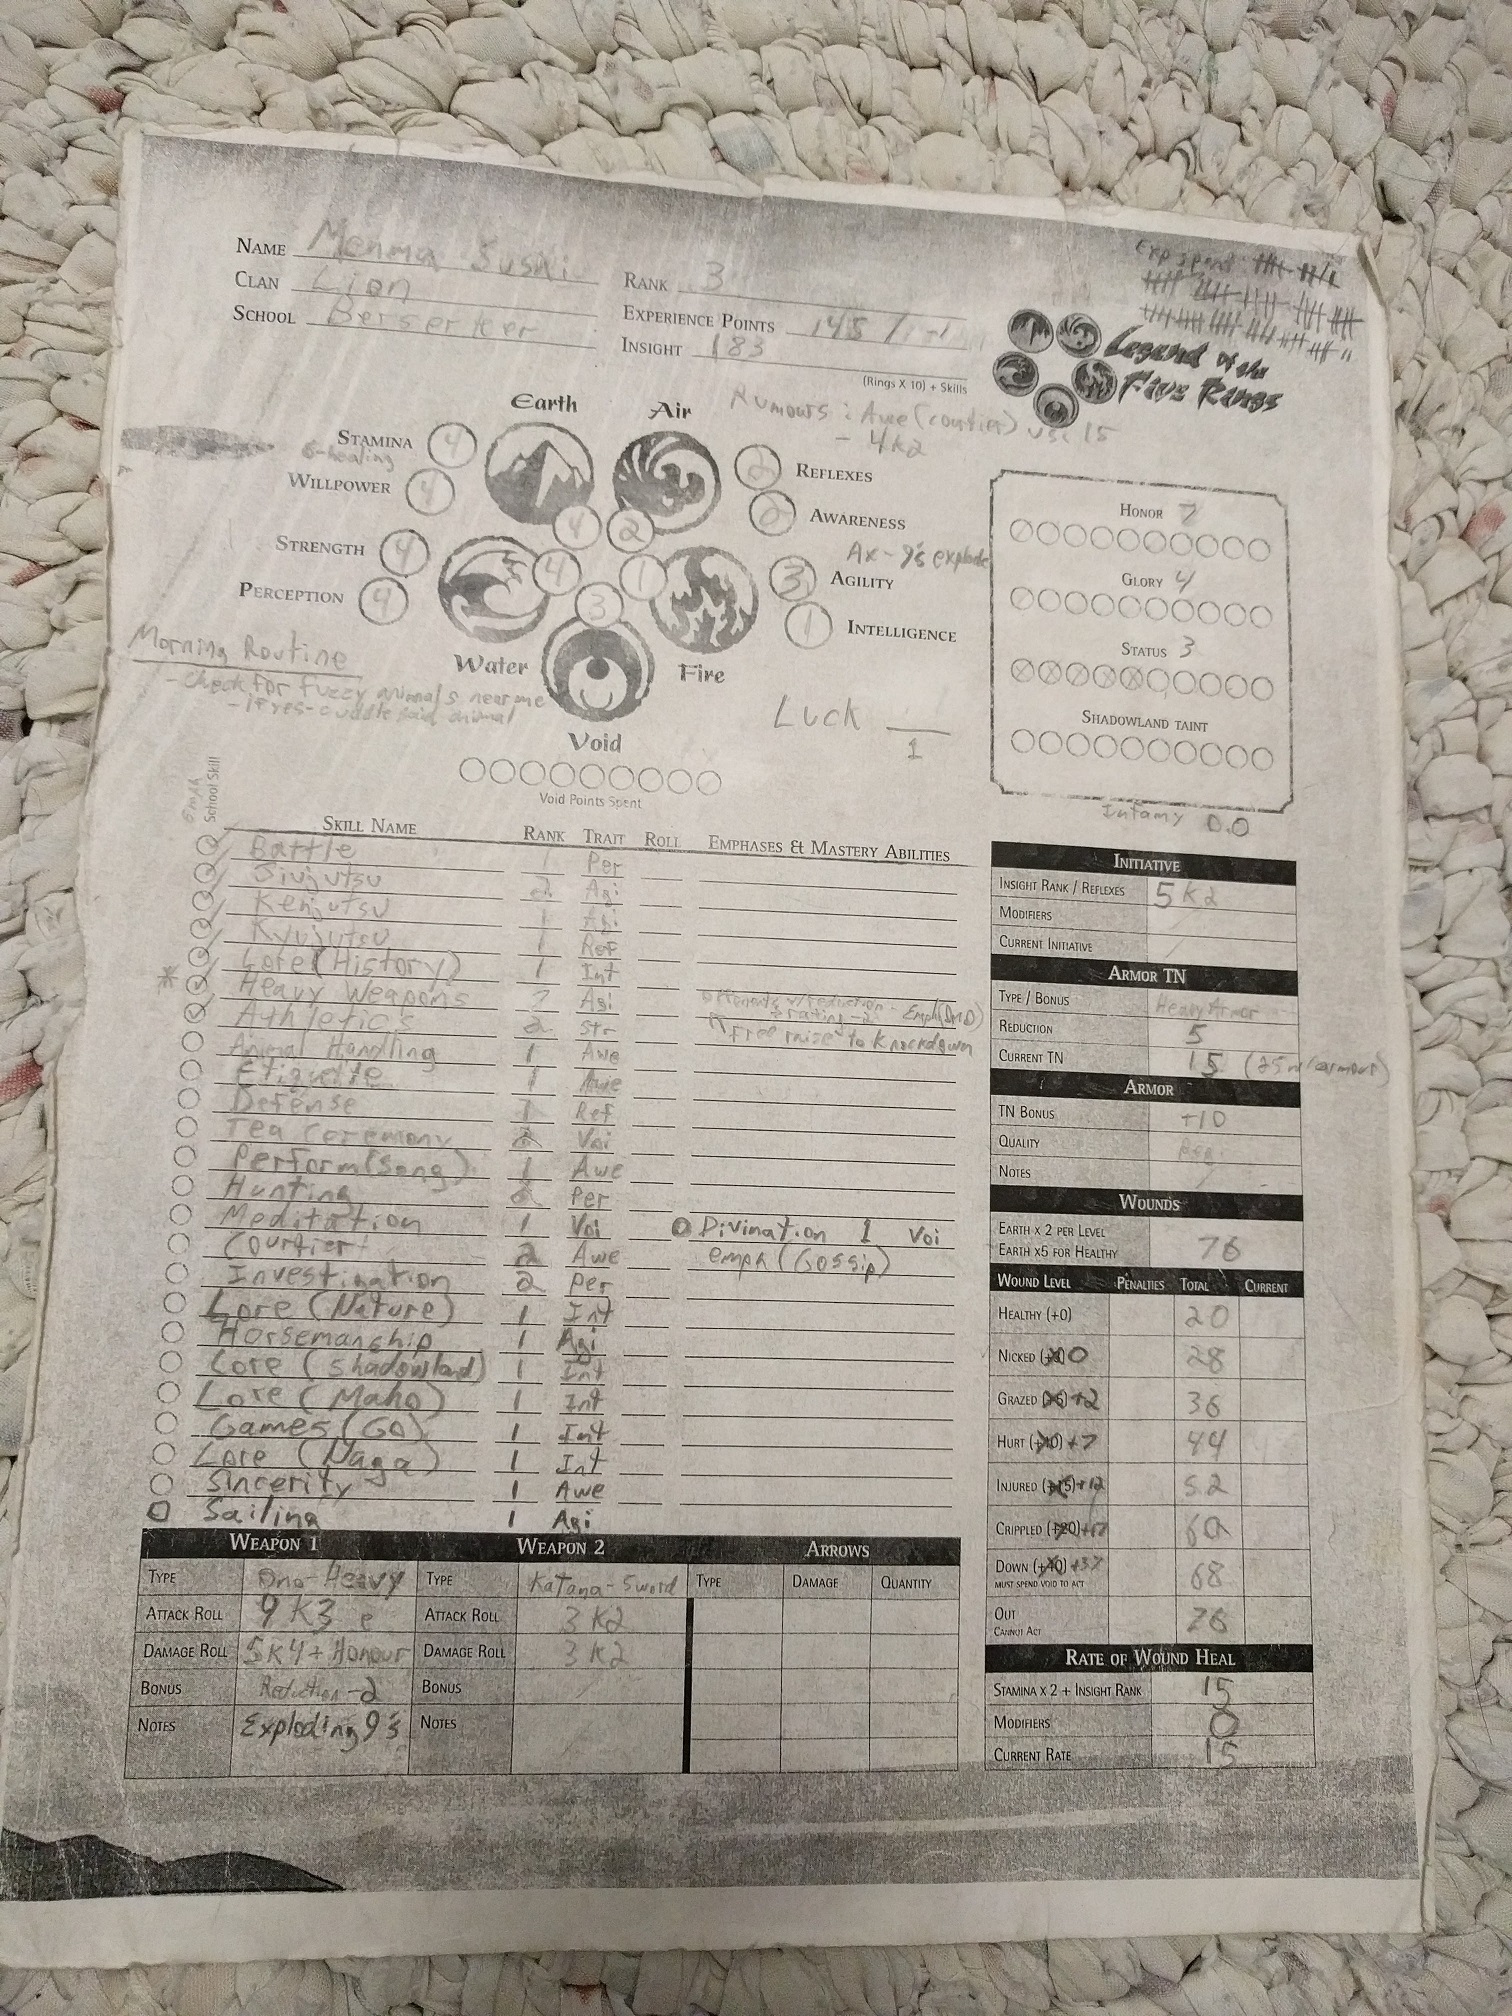 Exp spent
NAME Menma Sushi
RANK 3
CLAN Lion
EXPERIENCE POINTS 145 /
SCHOOL Berserker
INSIGHT 183
(RINGS X 10) + SKILLS
Legend of the
Five Rings
Rumours: Awe (courtier) vs: 15
- 4k2
Earth
Air
STAMINA 4
6-healing
WILLPOWER 4
REFLEXES 2
AWARENESS
4 2
STRENGTH 4
PERCEPTION 4
Ax - 9's explode
AGILITY 3
INTELLIGENCE 1
4 1
3
Water
Fire
Void
Morning Routine
- Check for fuzzy animals near me
- If yes - cuddle said animal
Luck
1
Void Points Spent
HONOR 7
GLORY 4
STATUS 3
SHADOWLAND TAINT
Infamy 0.0
emph
School Skill
SKILL NAME RANK TRAIT ROLL EMPHASES & MASTERY ABILITIES
Battle 1 Per
Jiujutsu 2 Agi
Kenjutsu 1 Agi
Kyujutsu 1 Ref
Lore (History) 1 Int
* Heavy Weapons 7 Agi
Athletics 2 Str
Free raise to knockdown
Animal Handling 1 Awe
Etiquette 1 Awe
Defense Ref
Tea Ceremony 2 Voi
Perform (Song) 1 Awe
Hunting Per
Meditation 1 Voi Divination 1 Voi
Courtier 2 Awe emph (Gossip)
Investigation 2 Per
Lore (Nature) 1 Int
Horsemanship 1 Agi
Lore (Shadowland) 1 Int
Lore (Maho) 1 Int
Games (GO) 1 Int
Lore (Naga) 1 Int
Sincerity 1 Awe
Sailing 1 Agi
INITIATIVE
INSIGHT RANK / REFLEXES 5k2
MODIFIERS
CURRENT INITIATIVE
ARMOR TN
TYPE / BONUS Heavy Armor
REDUCTION 5
CURRENT TN 15 (25 w/armour)
ARMOR
TN BONUS +10
QUALITY
NOTES
WOUNDS
EARTH X 2 PER LEVEL
EARTH X5 FOR HEALTHY
76
WOUND LEVEL PENALTIES TOTAL CURRENT
HEALTHY (+0) 20
NICKED 0 28
GRAZED +2 36
HURT (+10) +7 44
INJURED (+15) +12 52
CRIPPLED (+20) +17 60
DOWN (+40) +37 68
MUST SPEND VOID TO ACT
OUT 76
CANNOT ACT
RATE OF WOUND HEAL
STAMINA X 2 + INSIGHT RANK 15
MODIFIERS 0
CURRENT RATE 15
WEAPON 1 WEAPON 2 ARROWS
TYPE Ono-Heavy TYPE Katana-Sword TYPE DAMAGE QUANTITY
ATTACK ROLL 9k3 e ATTACK ROLL 3k2
DAMAGE ROLL 5k4+Honour DAMAGE ROLL 3k2
BONUS Reduction -2 BONUS
NOTES Exploding 9's NOTES